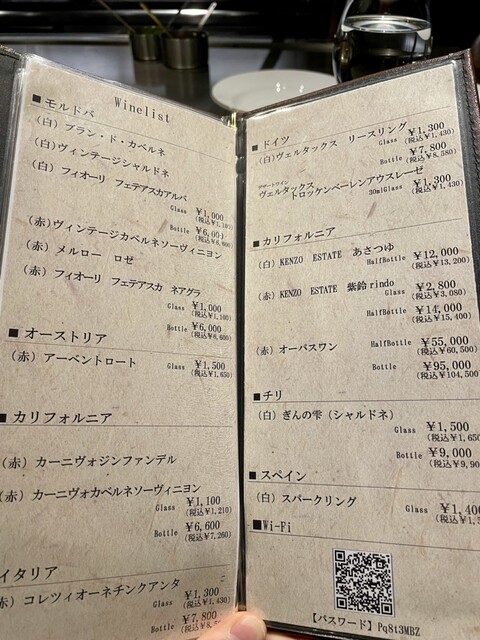 Winelist
■モルドバ
(白) ブラン・ド・カベルネ
(白)ヴィンテージシャルドネ
(白) フィオーリ フェテアスカアルバ
Glass ¥1,000
(税込¥1,100)
Bottle ¥6,000
(税込¥6,600)
(赤)ヴィンテージカベルネソーヴィニヨン
(赤) メルロー ロゼ
(赤) フィオーリ フェテアスカ ネアグラ
Glass ¥1,000
(税込¥1,100)
Bottle ¥6,000
(税込¥6,600)
■オーストリア
(赤) アーベントロート Glass ¥1,500
(税込¥1,650)
■カリフォルニア
(赤) カーニヴォジンファンデル
(赤) カーニヴォカベルネソーヴィニヨン
Glass ¥1,100
(税込¥1,210)
Bottle ¥6,600
(税込¥7,260)
イタリア
赤) コレツィオーネチンクアンタ
Glass ¥1,300
(税込¥1,430)
Bottle ¥7,800
■ドイツ
(白)ヴェルタックス リースリング
Glass ¥1,300
(税込¥1,430)
Bottle ¥7,800
(税込¥8,580)
デザートワイン
ヴェルタックス
トロッケンベーレンアウスレーゼ
30mlGlass ¥1,300
(税込¥1,430)
■カリフォルニア
(白) KENZO ESTATE あさつゆ
HalfBottle ¥12,000
(税込¥13,200)
(赤) KENZO ESTATE 紫鈴rindo
Glass ¥2,800
(税込¥3,080)
HalfBottle ¥14,000
(税込¥15,400)
(赤) オーパスワン HalfBottle ¥55,000
(税込¥60,500)
Bottle ¥95,000
(税込¥104,500)
■チリ
(白) ぎんの雫(シャルドネ)
Glass ¥1,500
(税込¥1,650
Bottle ¥9,000
(税込¥9,90
■スペイン
(白) スパークリング
Glass ¥1,40
(税込¥1,5
■Wi-Fi
【パスワード】Pq8t3MBZ